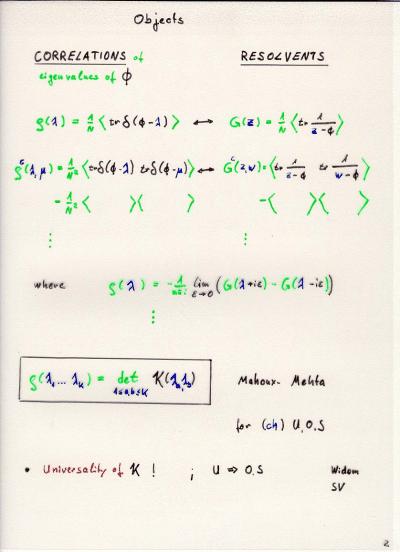 Objects
CORRELATIONS of
eigenvalues of ϕ
RESOLVENTS
ρ(λ) = 1/N ⟨ tr δ(ϕ-λ) ⟩ ↔ G(z) = 1/N ⟨ tr 1/(z-ϕ) ⟩
ρᶜ(λ,μ) = 1/N² ⟨ tr δ(ϕ-λ) tr δ(ϕ-μ) ⟩ ↔ Gᶜ(z,w) = ⟨ tr 1/(z-ϕ) tr 1/(w-ϕ) ⟩
- 1/N² ⟨ ⟩⟨ ⟩ - ⟨ ⟩⟨ ⟩
⋮ ⋮
where ρ(λ) = - 1/2πi lim ε→0 ( G(λ+iε) - G(λ-iε) )
⋮
ρ(λ₁...λₖ) = det 1≤a,b≤k K(λₐ,λ_b)
Mahoux- Mehta
for (ch) U,O,S
• Universality of K ! ; U ⇒ O,S
Widom
SV
2